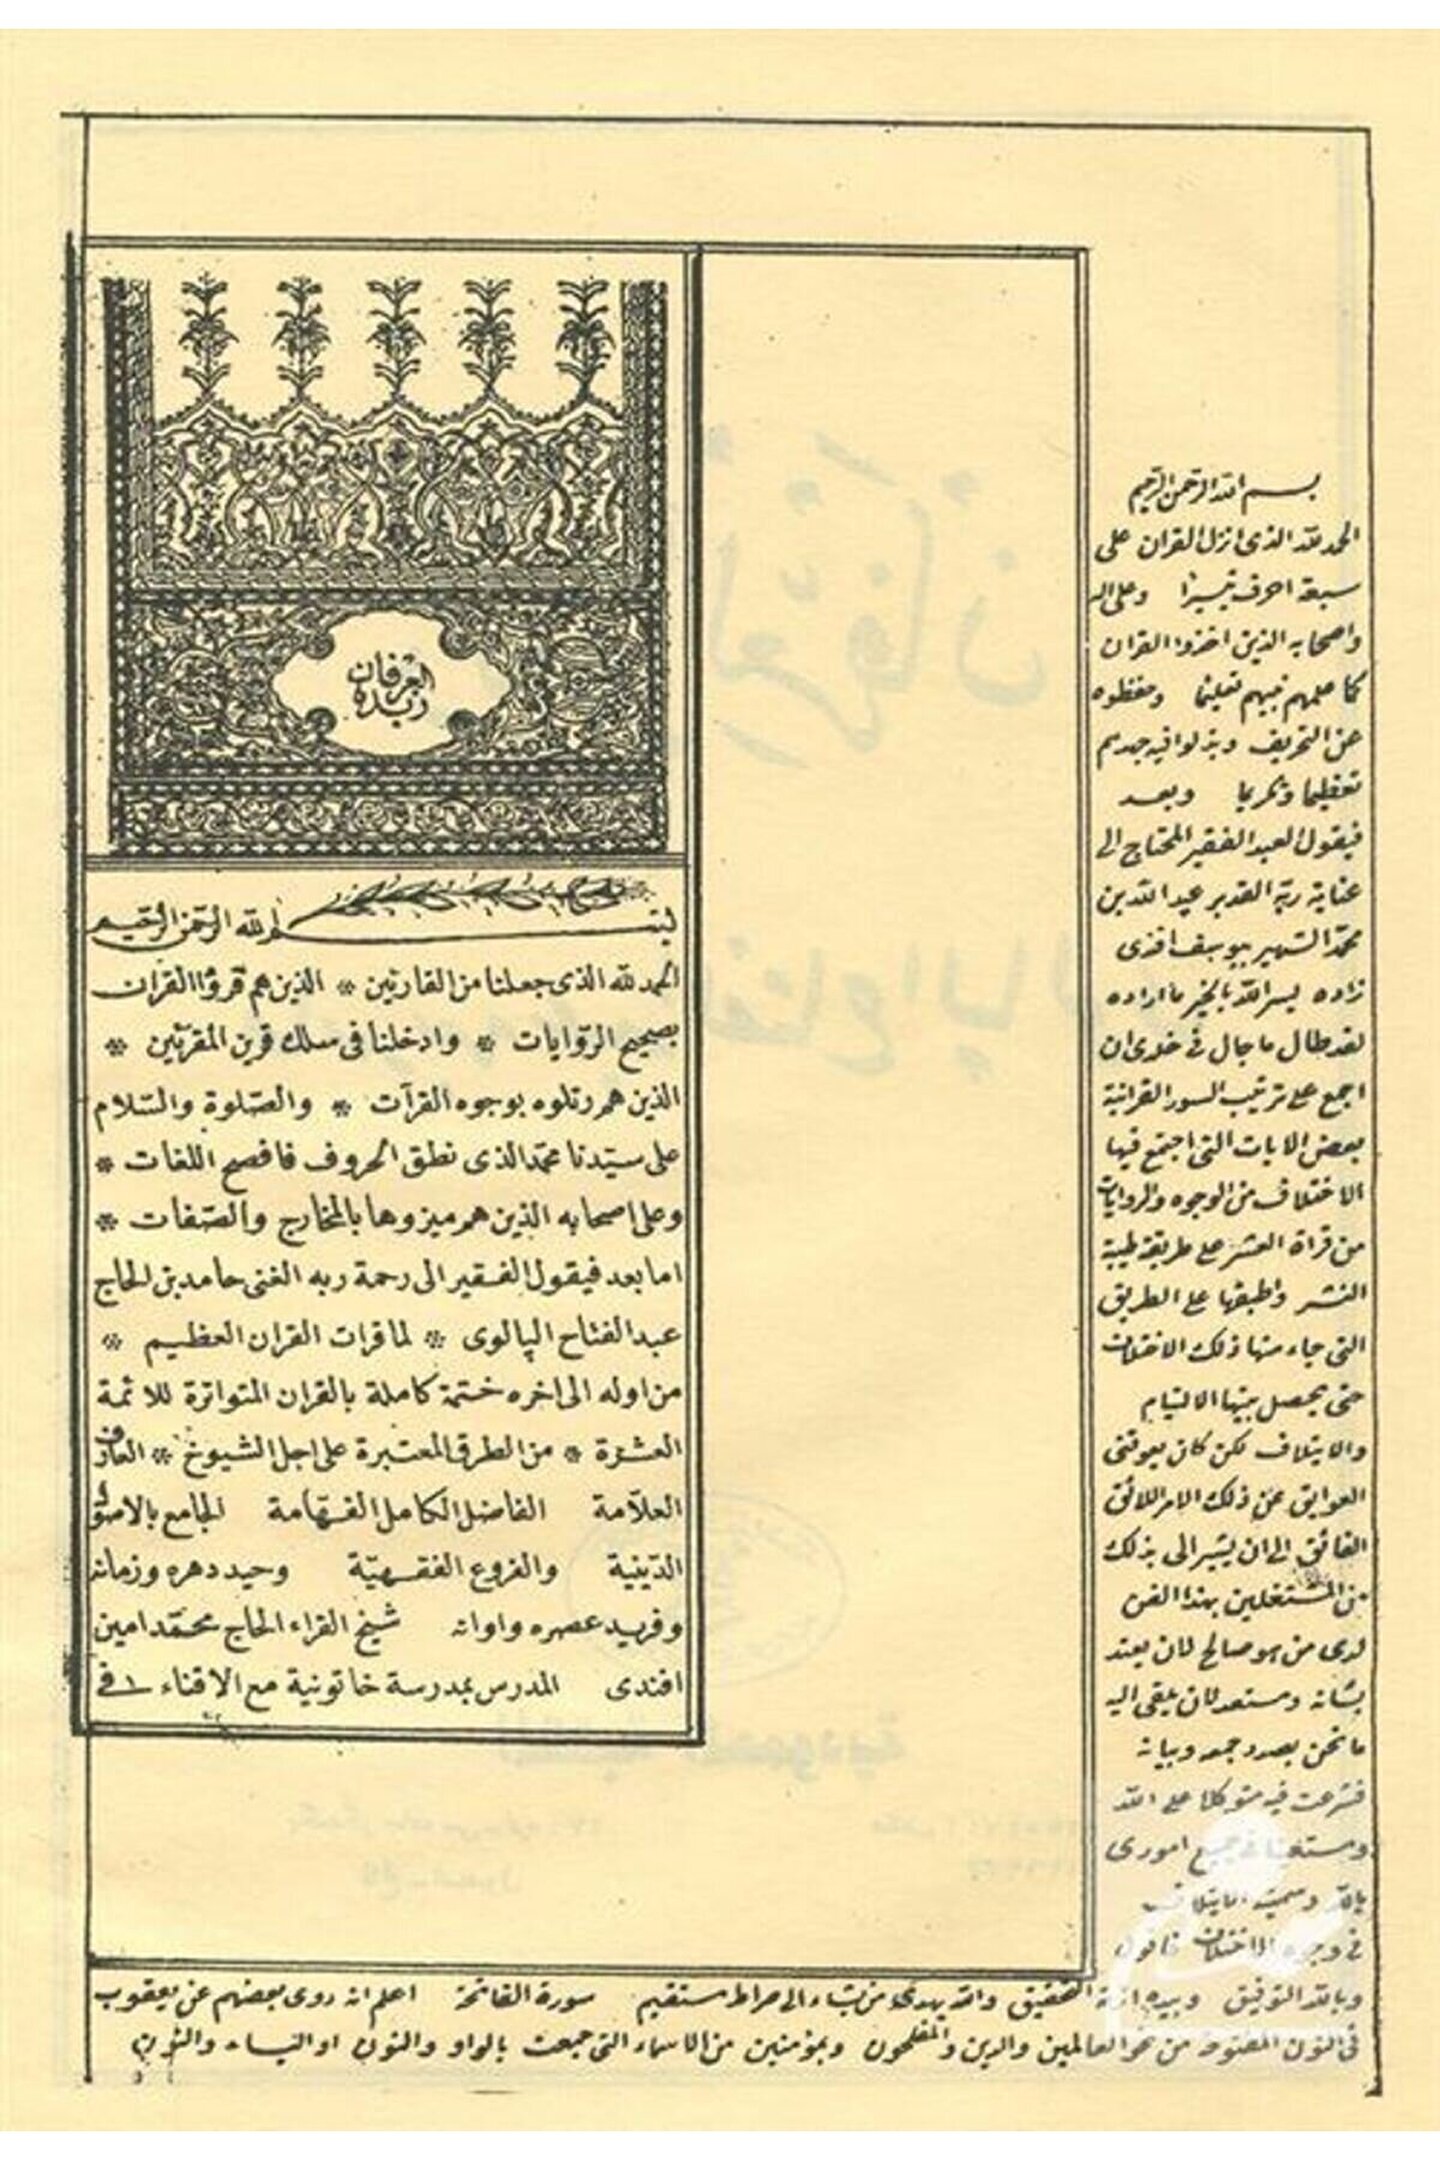 العرفان
زبدة
بسم الله الرحمن الرحيم
الحمد لله الذى جعلنا من القارئين * الذين هم قرؤا القران
بصحيح الروايات * وادخلنا فى مسلك قرين المقرئين *
الذين هم رتلوه بوجوه القرآت * والصلوة والسلام
على سيدنا محمد الذى نطق الحروف فافصح اللغات *
وعلى اصحابه الذين هم ميزوها بالمخارج والصفات *
اما بعد فيقول الفقير الى رحمة ربه الغنى حامد بن الحاج
عبد الفتاح الپالوى * لما قرات القران العظيم *
من اوله الى اخره ختمة كاملة بالقران المتواترة للائمة
العشرة * من الطرق المعتبرة على اجل الشيوخ * العارف
العلامة الفاضل الكامل الفهامة الجامع بالاصول
الدينية والفروع الفقهية وحيد دهره وزمانه
وفريد عصره واوانه شيخ القراء الحاج محمد امين
افندى المدرس بمدرسة خاتونية مع الافتاء فى
بسم الله الرحمن الرحيم
الحمد لله الذى انزل القران على
سبعة احرف تيسيرا وعلى اله
واصحابه الذين اخذوا القران
كما علمهم نبيهم تعليما وحفظوه
عن التحريف وبذلوا فيه جهدهم
تعظيما وتكريما وبعد
فيقول العبد الفقير المحتاج الى
عناية ربه القدير عبد الله بن
محمد الشهير بيوسف افندى
زاده يسر الله بالخير ما اراده
لقد طال ما جال فى خلدى ان
اجمع على ترتيب السور القرانية
بعض الايات التى اجتمع فيها
الاختلاف من الوجوه والروايات
من قراة العشر على طريقة طيبة
النشر واطبقها على الطريق
التى جاء منها ذلك الاختلاف
حتى يحصل بينها الالتيام
والايتلاف لكن كان يعوقنى
العوايق عن ذلك الامر اللائق
الفائق الى ان يشير الى بذلك
من المشتغلين بهذا الفن
لدى من هو صالح لان يعتد
بشانه ومستعد لان يلقى اليه
ما نحن بصدد جمعه وبيانه
فشرعت فيه متوكلا على الله
ومستعينا فى جميع امورى
بالله وسميته الايتلاف
فى وجوه الاختلاف فاقول
وبالله التوفيق وبيده ازمة التحقيق والله يهدى من يشاء الى صراط مستقيم سورة الفاتحة اعلم انه روى بعضهم عن يعقوب
فى النون المفتوحة من نحو العالمين والدين والمفلحون وبمؤمنين من الاسماء التى جمعت بالواو والنون او الياء والنون